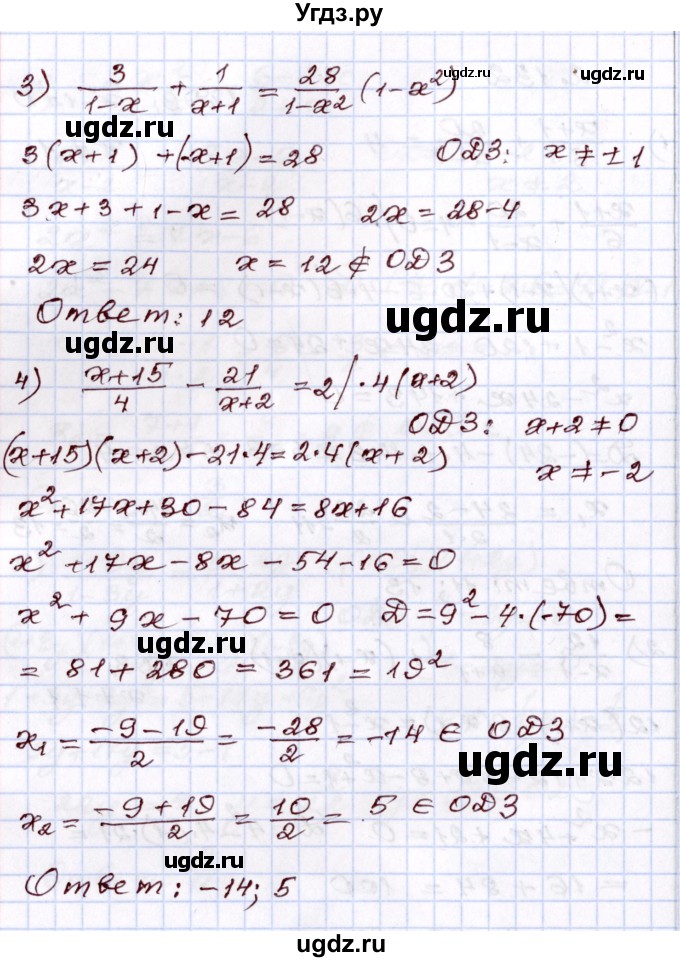 Угдз.ру
3) 3/(1-x) + 1/(x+1) = 28/(1-x²) (1-x²)
ugdz.ru ugdz.ru
3(x+1) + (-x+1) = 28 ОДЗ: x ≠ ±1
3x+3+1-x = 28 2x = 28-4
2x = 24 x = 12 ∉ ОДЗ
Ответ: 12
ugdz.ru
ugdz.ru
4) (x+15)/4 - 21/(x+2) = 2 /·4(x+2)
ugdz.ru
ОДЗ: x+2≠0
(x+15)(x+2)-21·4=2·4(x+2)
x ≠ -2
x²+17x+30-84=8x+16
ugdz.ru
x²+17x-8x-54-16=0
x²+9x-70=0 Д=9²-4·(-70)=
ugdz.ru
= 81+280 = 361 = 19²
x₁ = (-9-19)/2 = -28/2 = -14 ∈ ОДЗ
ugdz.ru ugdz.ru
x₂ = (-9+19)/2 = 10/2 = 5 ∈ ОДЗ
ugdz.ru
Ответ: -14; 5
ugdz.ru